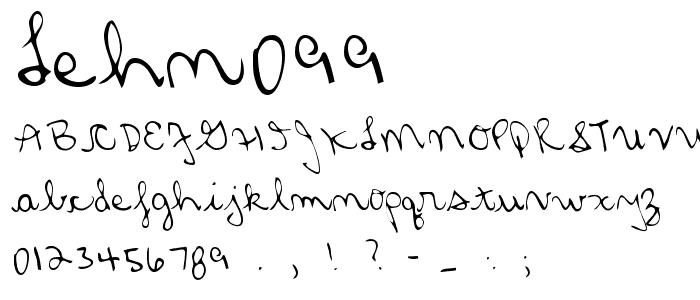 Lehn099
ABCDEFGHIJKLMNOPQRSTUVW
abcdefghijklmnopqrstuvwxyz
0123456789 . , ! ? - _ : ;